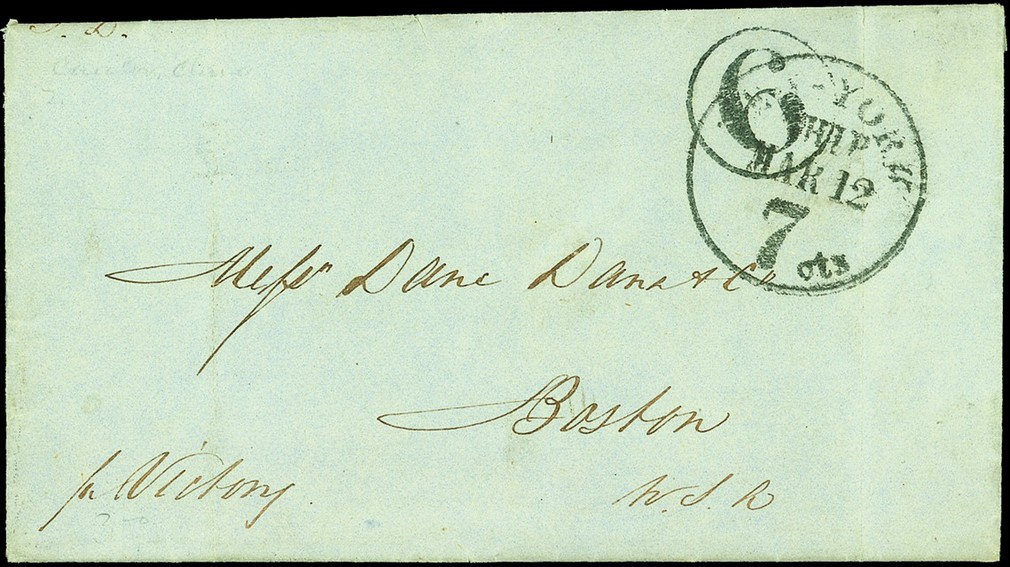 Canton, China
6
YORK
SHIP
MAR 12
7 cts
Messrs Dane Dana & Co
Boston
pr Victory
U.S.A